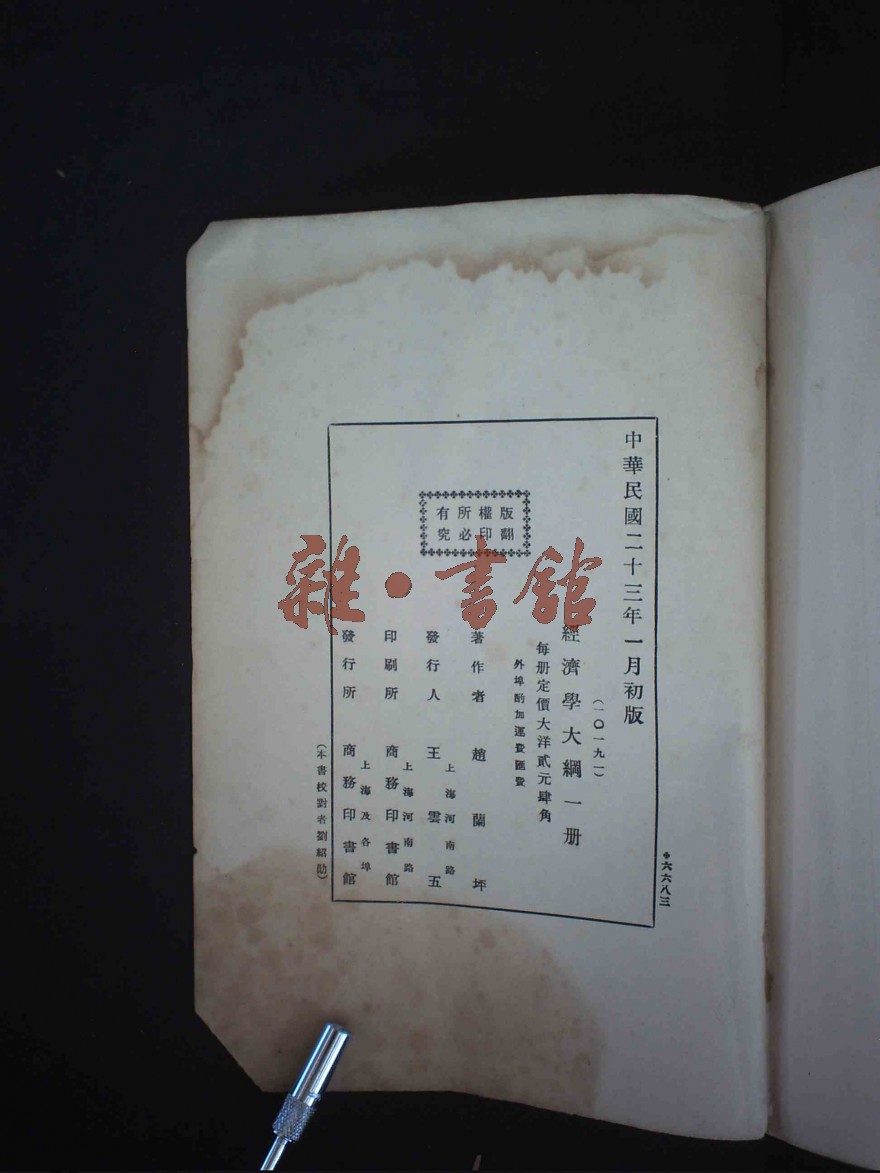 中華民國二十三年一月初版
(一〇一九一)
經濟學大綱一册
每册定價大洋貳元肆角
外埠酌加運費匯費
版權所有
翻印必究
著作者 趙蘭坪
上海河南路
發行人 王雲五
上海河南路
印刷所 商務印書館
上海及各埠
發行所 商務印書館
(本書校對者劉紹助)
六六八三
雜·書館